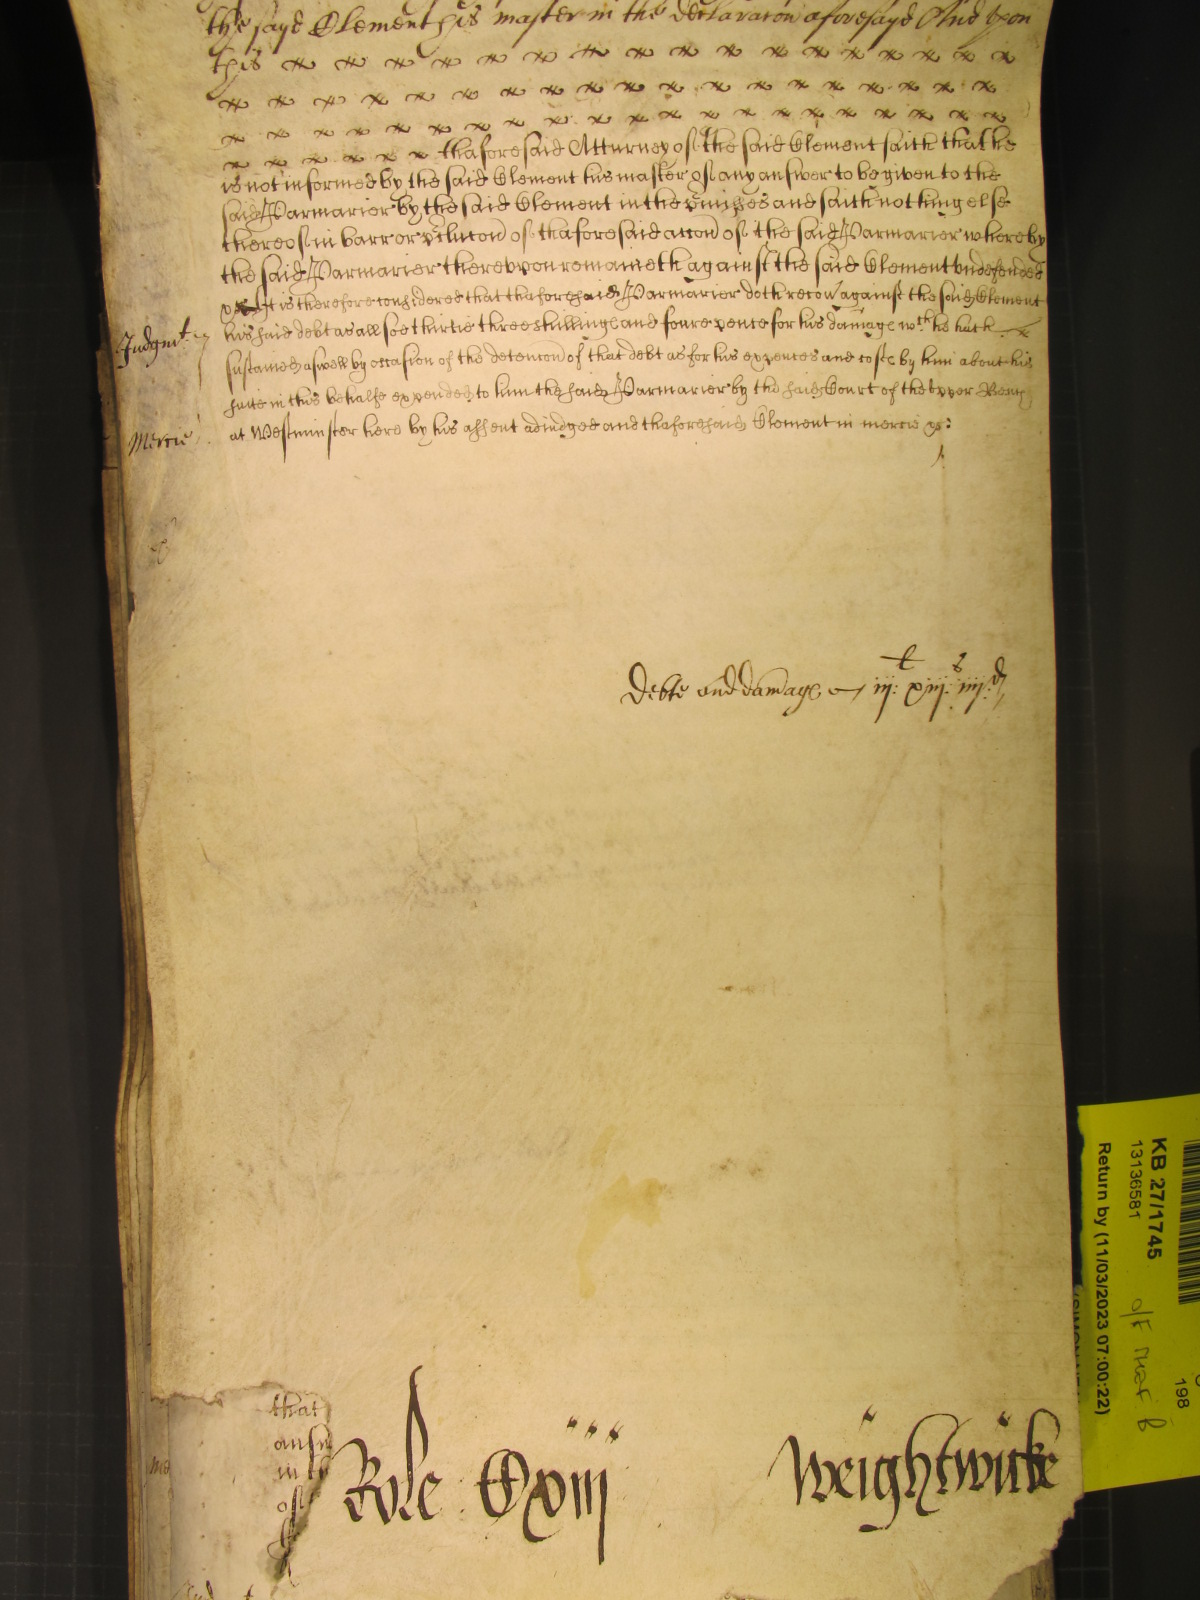 the sayd Clement his master in the declaracon aforesayd And upon
this
thaforesaid Atturney of the said Clement saith that he
is not informed by the said Clement his master of any answer to be given to the
said Parmarier by the said Clement in the pmisses and saith nothing else
thereof in barr or pclucon of thaforesaid accon of the said Parmarier whereby
the said Parmarier thereupon remaineth against the said Clement undefended
It is therefore considered that thaforesaid Parmarier doth recov against the said Clement
his said debt as allsoe thirtie three shillings and foure pence for his damage wch he hath
sustained aswell by occasion of the detencon of that debt as for his expences and costs by him about his
suite in this behalfe expended to him the said Parmarier by the said Court of the upper Bench
at Westminster here by his assent adiudged and thaforesaid Clement in mercie &c:
Judgmt
Mercie
Debte and damage iij: l xiij: s iiij: d
that
answ
in
of
Role Cxiij
Weightwicke
KB 27/1745
13136581
Return by (11/03/2023 07:00:22)
198